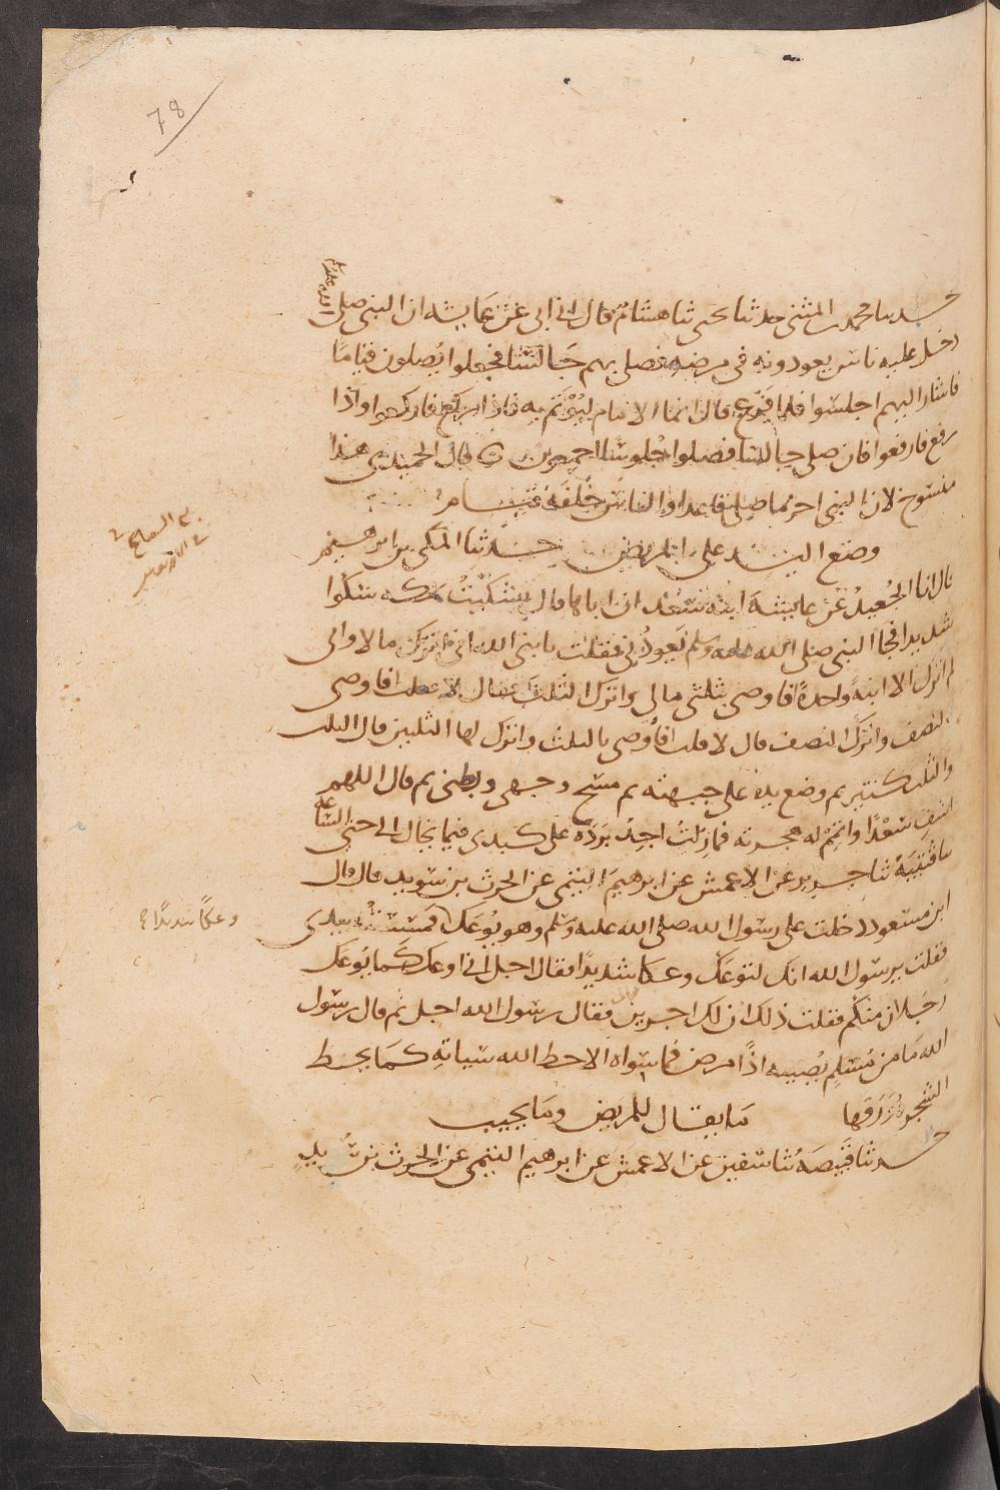 78
حدثنا محمد بن المثنى حدثنا يحيى ثنا هشام قال اني ابي عن عايشه ان النبي صلى الله عليه وسلم
دخل عليه ناس يعودونه في مرضه فصلى بهم جالسا فجعلوا يصلون قياما
فاشار اليهم اجلسوا فلما فرغ قال انما الامام ليؤتم به فاذا ركع فاركعوا واذا
رفع فارفعوا فان صلى جالسا فصلوا جلوسا اجمعون قال الحميدي هذا
منسوخ لان النبي اخر ما صلى قاعدا والناس خلفه قيام
وضع اليد على المريض حدثنا المكي بن ابرهيم
قال انا الجعيد عن عايشة ابنة سعد ان اباها قال اشتكيت بمكه شكوا
شديدا فجا النبي صلى الله عليه وسلم يعودني فقلت يا نبي الله اني اترك مالا واني
لم اترك الا ابنة واحدة افاوصي بثلثي مالي واترك الثلث فقال لا قلت افاوصي
بالنصف واترك النصف قال لا قلت افاوصي بالثلث واترك لها الثلثين قال الثلث
والثلث كثير ثم وضع يده على جبهته ثم مسح وجهي وبطني ثم قال اللهم
اشف سعدا واتمم له هجرته فما زلت اجد برده على كبدي فيما يخال الي حتى الساعة
ثنا قتيبة ثنا جرير عن الاعمش عن ابرهيم التيمي عن الحرث بن سويد قال قال
ابن مسعود دخلت على رسول الله صلى الله عليه وسلم وهو يوعك فمسسته بيدي
وعكا شديدا
فقلت يرسول الله انك لتوعك وعكا شديدا فقال اجل اني اوعك كما يوعك
رجلان منكم فقلت ذلك ان لك اجرين فقال رسول الله اجل ثم قال رسول
الله ما من مسلم يصيبه اذا مرض فما سواه الا حط الله سياته كما يحط
الشجرة ورقها ما يقال للمريض وما يجيب
حدثنا قبيصة ثنا سفين عن الاعمش عن ابرهيم التيمي عن الحرث بن سويد